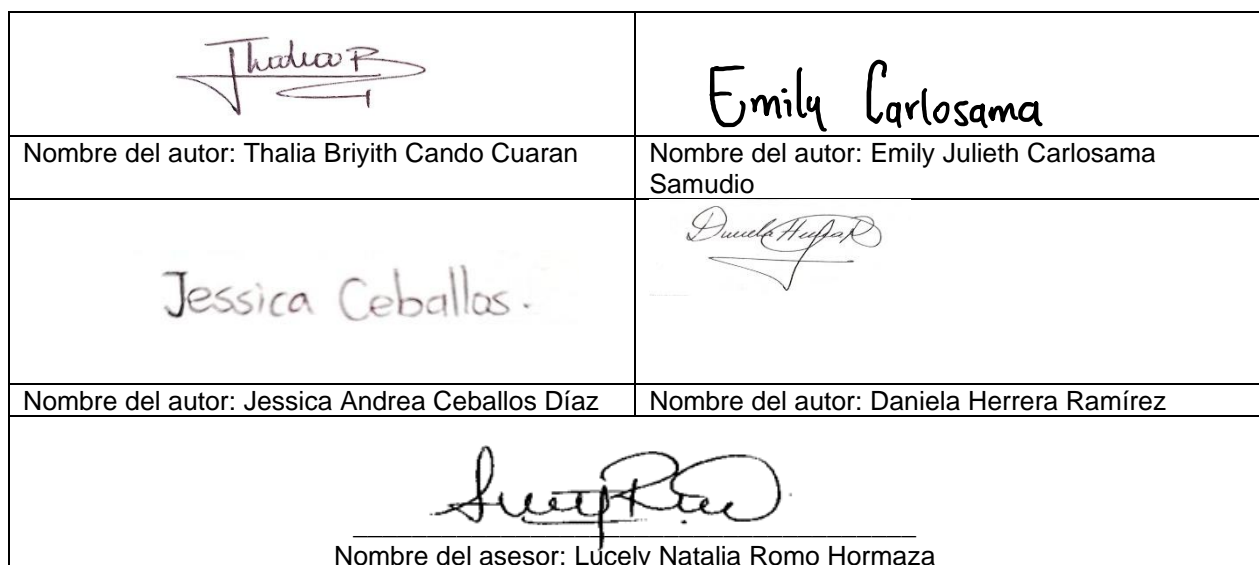 Thalia B
Emily Carlosama
Nombre del autor: Thalia Briyith Cando Cuaran
Nombre del autor: Emily Julieth Carlosama
Samudio
Jessica Ceballos.
Daniela Herrera R
Nombre del autor: Jessica Andrea Ceballos Díaz
Nombre del autor: Daniela Herrera Ramírez
Nombre del asesor: Lucely Natalia Romo Hormaza